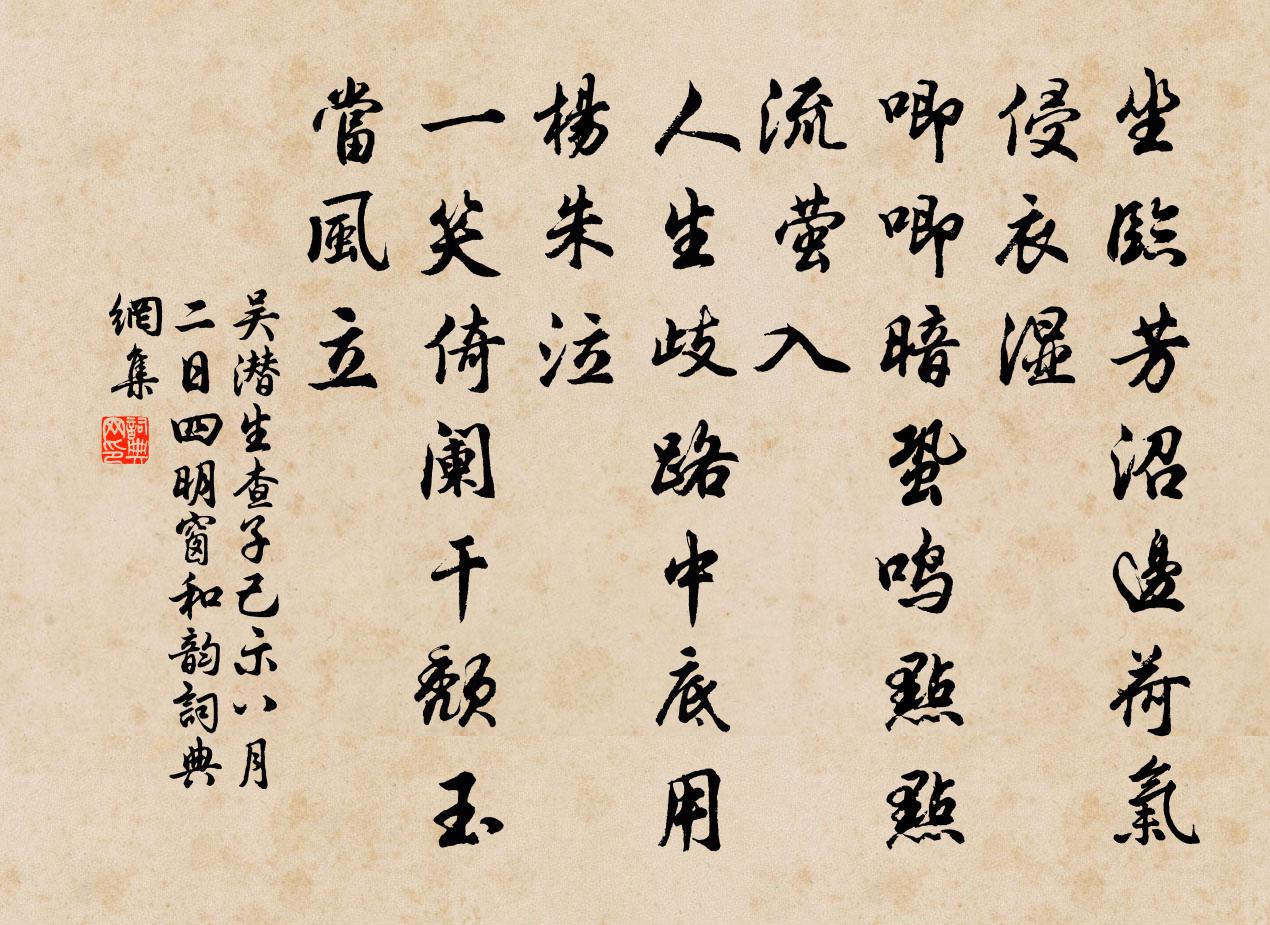 坐臨芳沼邊荷氣
侵衣湿
唧唧暗蛩鳴點點
流萤入
人生歧路中底用
楊朱泣
一笑倚阑干頽玉
當風立
吴潜生查子己示八月
二日四明窗和韵詞典
網集
詞典
网印